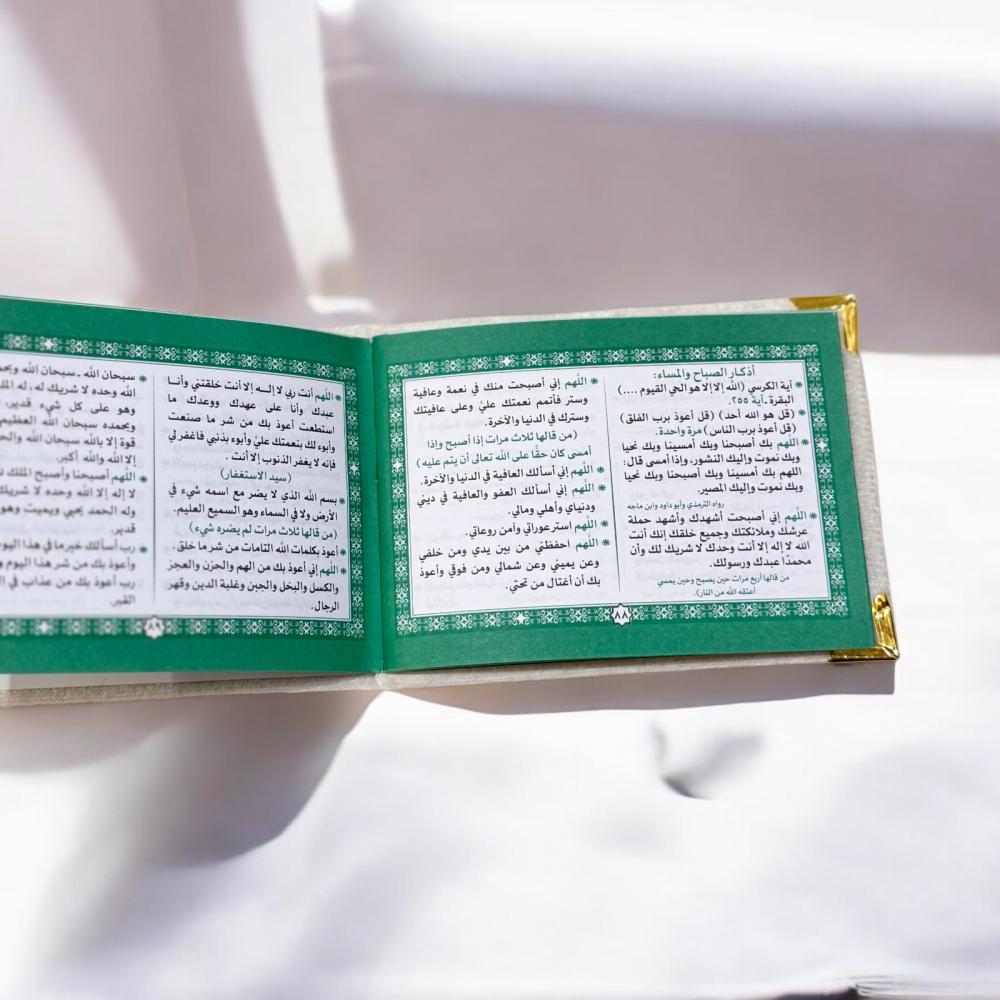 أذكار الصباح والمساء:
* آية الكرسي (الله لا إله إلا هو الحي القيوم ....)
البقرة ـ آية ٢٥٥.
* (قل هو الله أحد) (قل أعوذ برب الفلق)
(قل أعوذ برب الناس) مرة واحدة.
* اللهم بك أصبحنا وبك أمسينا وبك نحيا
وبك نموت وإليك النشور، وإذا أمسى قال:
اللهم بك أمسينا وبك أصبحنا وبك نحيا
وبك نموت وإليك المصير.
رواه الترمذي وأبو داود وابن ماجه
* اللهم إني أصبحت أشهدك وأشهد حملة
عرشك وملائكتك وجميع خلقك إنك أنت
الله لا إله إلا أنت وحدك لا شريك لك وأن
محمدًا عبدك ورسولك.
من قالها أربع مرات حين يصبح وحين يمسي
أعتقه الله من النار).
* اللهم إني أصبحت منك في نعمة وعافية
وستر فأتمم نعمتك عليَّ وعلى عافيتك
وسترك في الدنيا والآخرة.
(من قالها ثلاث مرات إذا أصبح وإذا
أمسى كان حقًا على الله تعالى أن يتم عليه)
* اللهم إني أسألك العافية في الدنيا والآخرة.
* اللهم إني أسألك العفو والعافية في ديني
ودنياي وأهلي ومالي.
* اللهم استر عوراتي وآمن روعاتي.
* اللهم احفظني من بين يدي ومن خلفي
وعن يميني وعن شمالي ومن فوقي وأعوذ
بك أن أغتال من تحتي.
٨٨
* اللهم أنت ربي لا إله إلا أنت خلقتني وأنا
عبدك وأنا على عهدك ووعدك ما
استطعت أعوذ بك من شر ما صنعت
وأبوء لك بنعمتك عليَّ وأبوء بذنبي فاغفر لي
فإنه لا يغفر الذنوب إلا أنت.
(سيد الاستغفار)
* بسم الله الذي لا يضر مع اسمه شيء في
الأرض ولا في السماء وهو السميع العليم.
(من قالها ثلاث مرات لم يضره شيء)
* أعوذ بكلمات الله التامات من شر ما خلق.
* اللهم إني أعوذ بك من الهم والحزن والعجز
والكسل والبخل والجبن وغلبة الدين وقهر
الرجال.
* سبحان الله ـ سبحان الله
الله وحده لا شريك له، له
وهو على كل شيء قدير،
وبحمده سبحان الله العظيم
قوة إلا بالله سبحان الله
إلا الله والله أكبر.
* اللهم أصبحنا وأصبح الملك
لا إله إلا الله وحده لا شريك
وله الحمد يحيي ويميت وهو
قدير.
* رب أسألك خير ما في هذا اليوم
وأعوذ بك من شر هذا اليوم
رب أعوذ بك من عذاب في
القبر.
٨٩